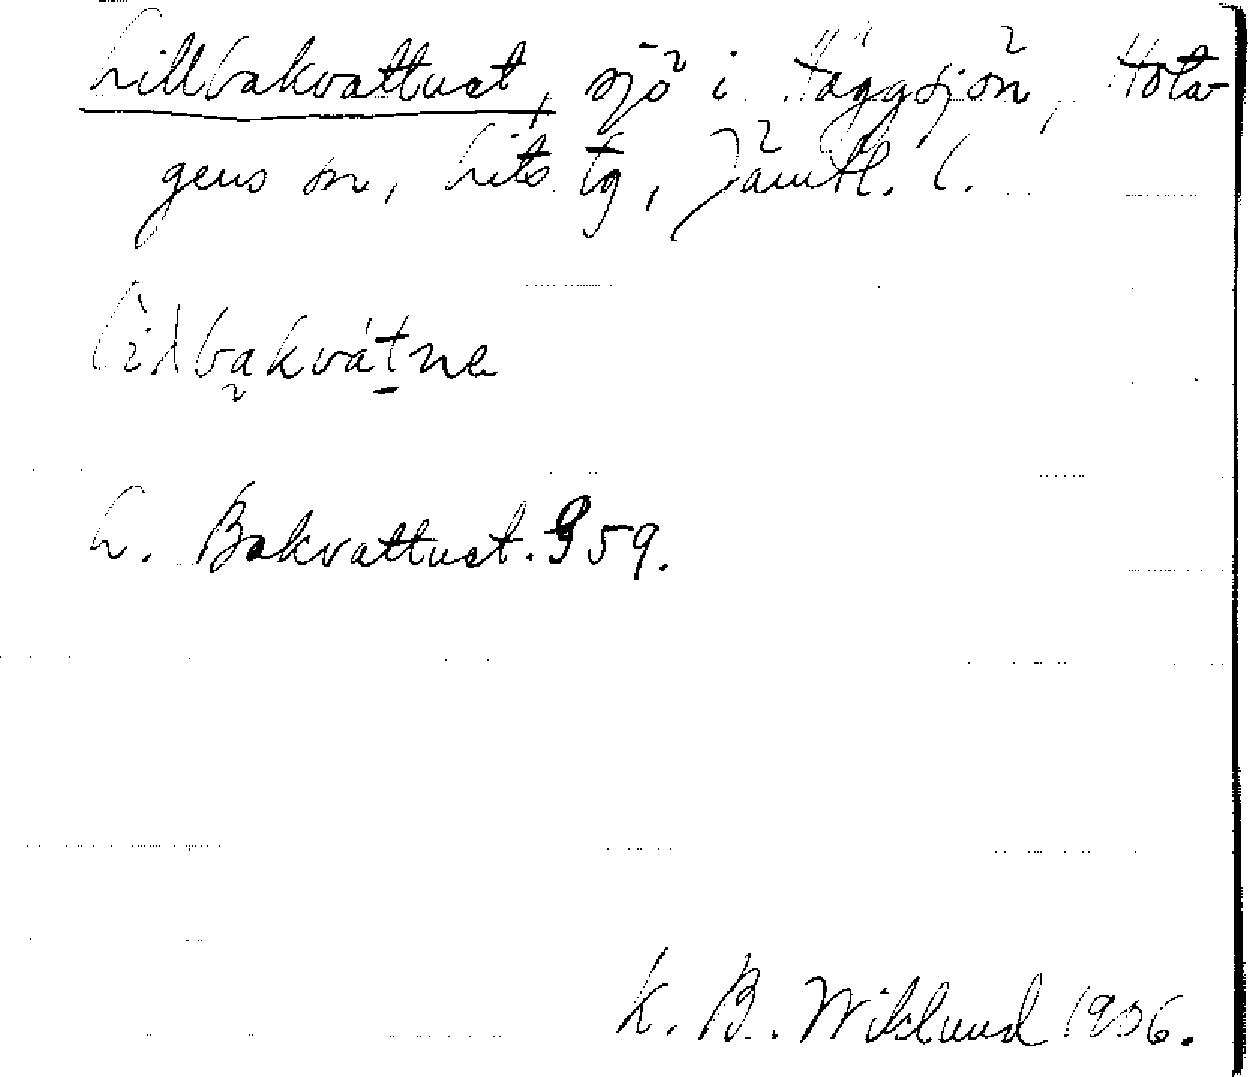 Lillbakvattnet, sjö i Häggsjön, Hota-
gens sn, Lits tg, Jämtl. l.
L. Bakvattnet. 959.
K. B. Wiklund 1906.